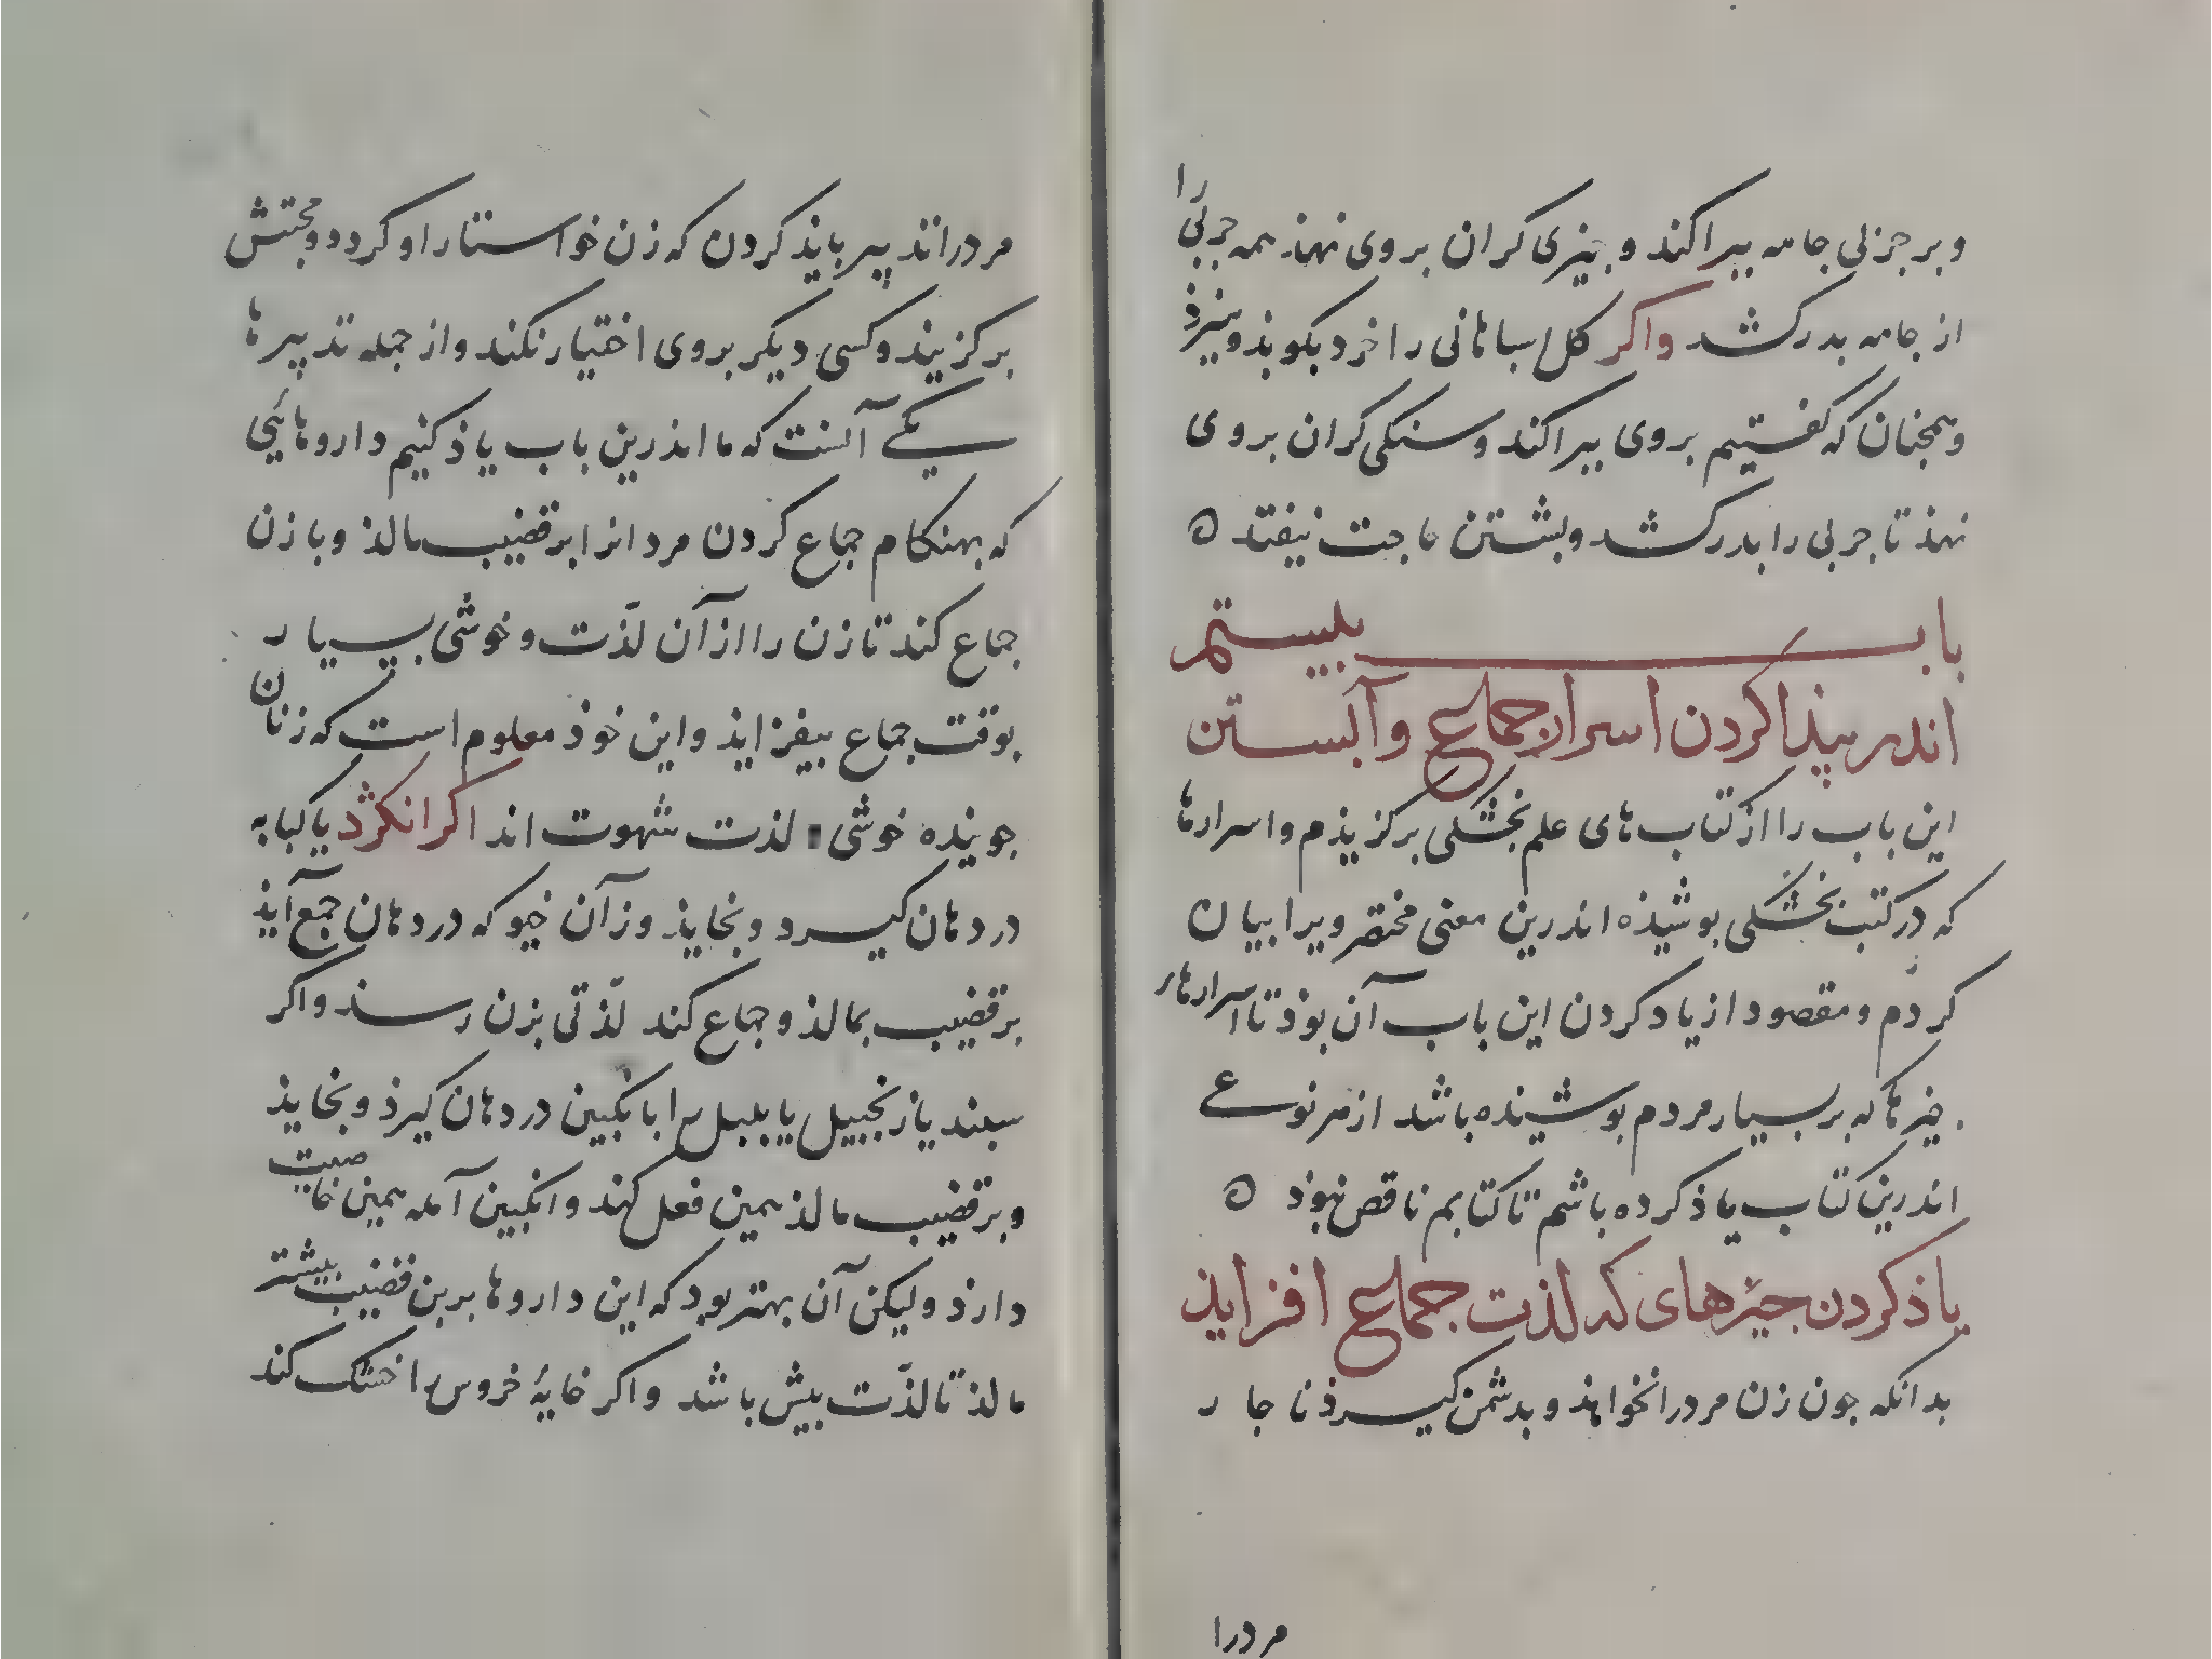 و بر جزلی جامه ببراکند و جیزی کران بروی نهند همه جربی را
از جامه بدر کشد واکر کل سباهانی را خرد بکوبذ و ببیزذ
و همجنان که کفتیم بروی ببراکند و سنکی کران بروی
نهند تا جربی را بدر کشد و بشتن حاجت نیفتد ه
باب بیستم
اندر بیذا کردن اسرار جماع و آبستن
این باب را از کتاب های علم بخشکی برکزیذم و اسرارها
که در کتب بخشکی بوشیذه اندرین معنی مختصر ویرا بیان
کردم و مقصود از یاد کردن این باب آن بوذ تا اسرارهاء
جیزها که بر بسیار مردم بوشیده باشد از هر نوعے
اندرین کتاب یاذ کرده باشم تا کتابم ناقص نبوذ ه
یاذ کردن جیزهای که لذت جماع افزایذ
بدانکه جون زن مرد را نخواهذ و بدشمن کیرذ ناجار
مرد را
مرد را تدبیر بایذ کردن که زن خواستار او کردد و محبتش
برکزیند و کسی دیکر بروی اختیار نکند و از جمله تدبیرها
یکے آنست که ما اندرین باب یاذ کنیم داروهائی
که بهنکام جماع کردن مرد انرا بر قضیب مالذ و با زن
جماع کند تا زن را از آن لذّت و خوشی بسیار
بوقت جماع بیفزایذ و این خوذ معلوم است که زنان
جوینده خوشی لذت شهوت اند اکر انکژد یا کبابه
در دهان کیرد و بخایذ وز آن خیو که در دهان جمع آیذ
بر قضیب بمالذ و جماع کند لذّتی بزن رسد و اکر
سبند یا زنجبیل یا بلبل را با نکبین در دهان کیرذ و بخایذ
و بر قضیب مالذ همین فعل کند و انکبین آمله همین خاصیت
دارذ ولیکن آن بهتر بود که این داروها بر بن قضیب بیشتر
مالذ تا لذّت بیش باشد واکر خایهٔ خروس را خشک کند